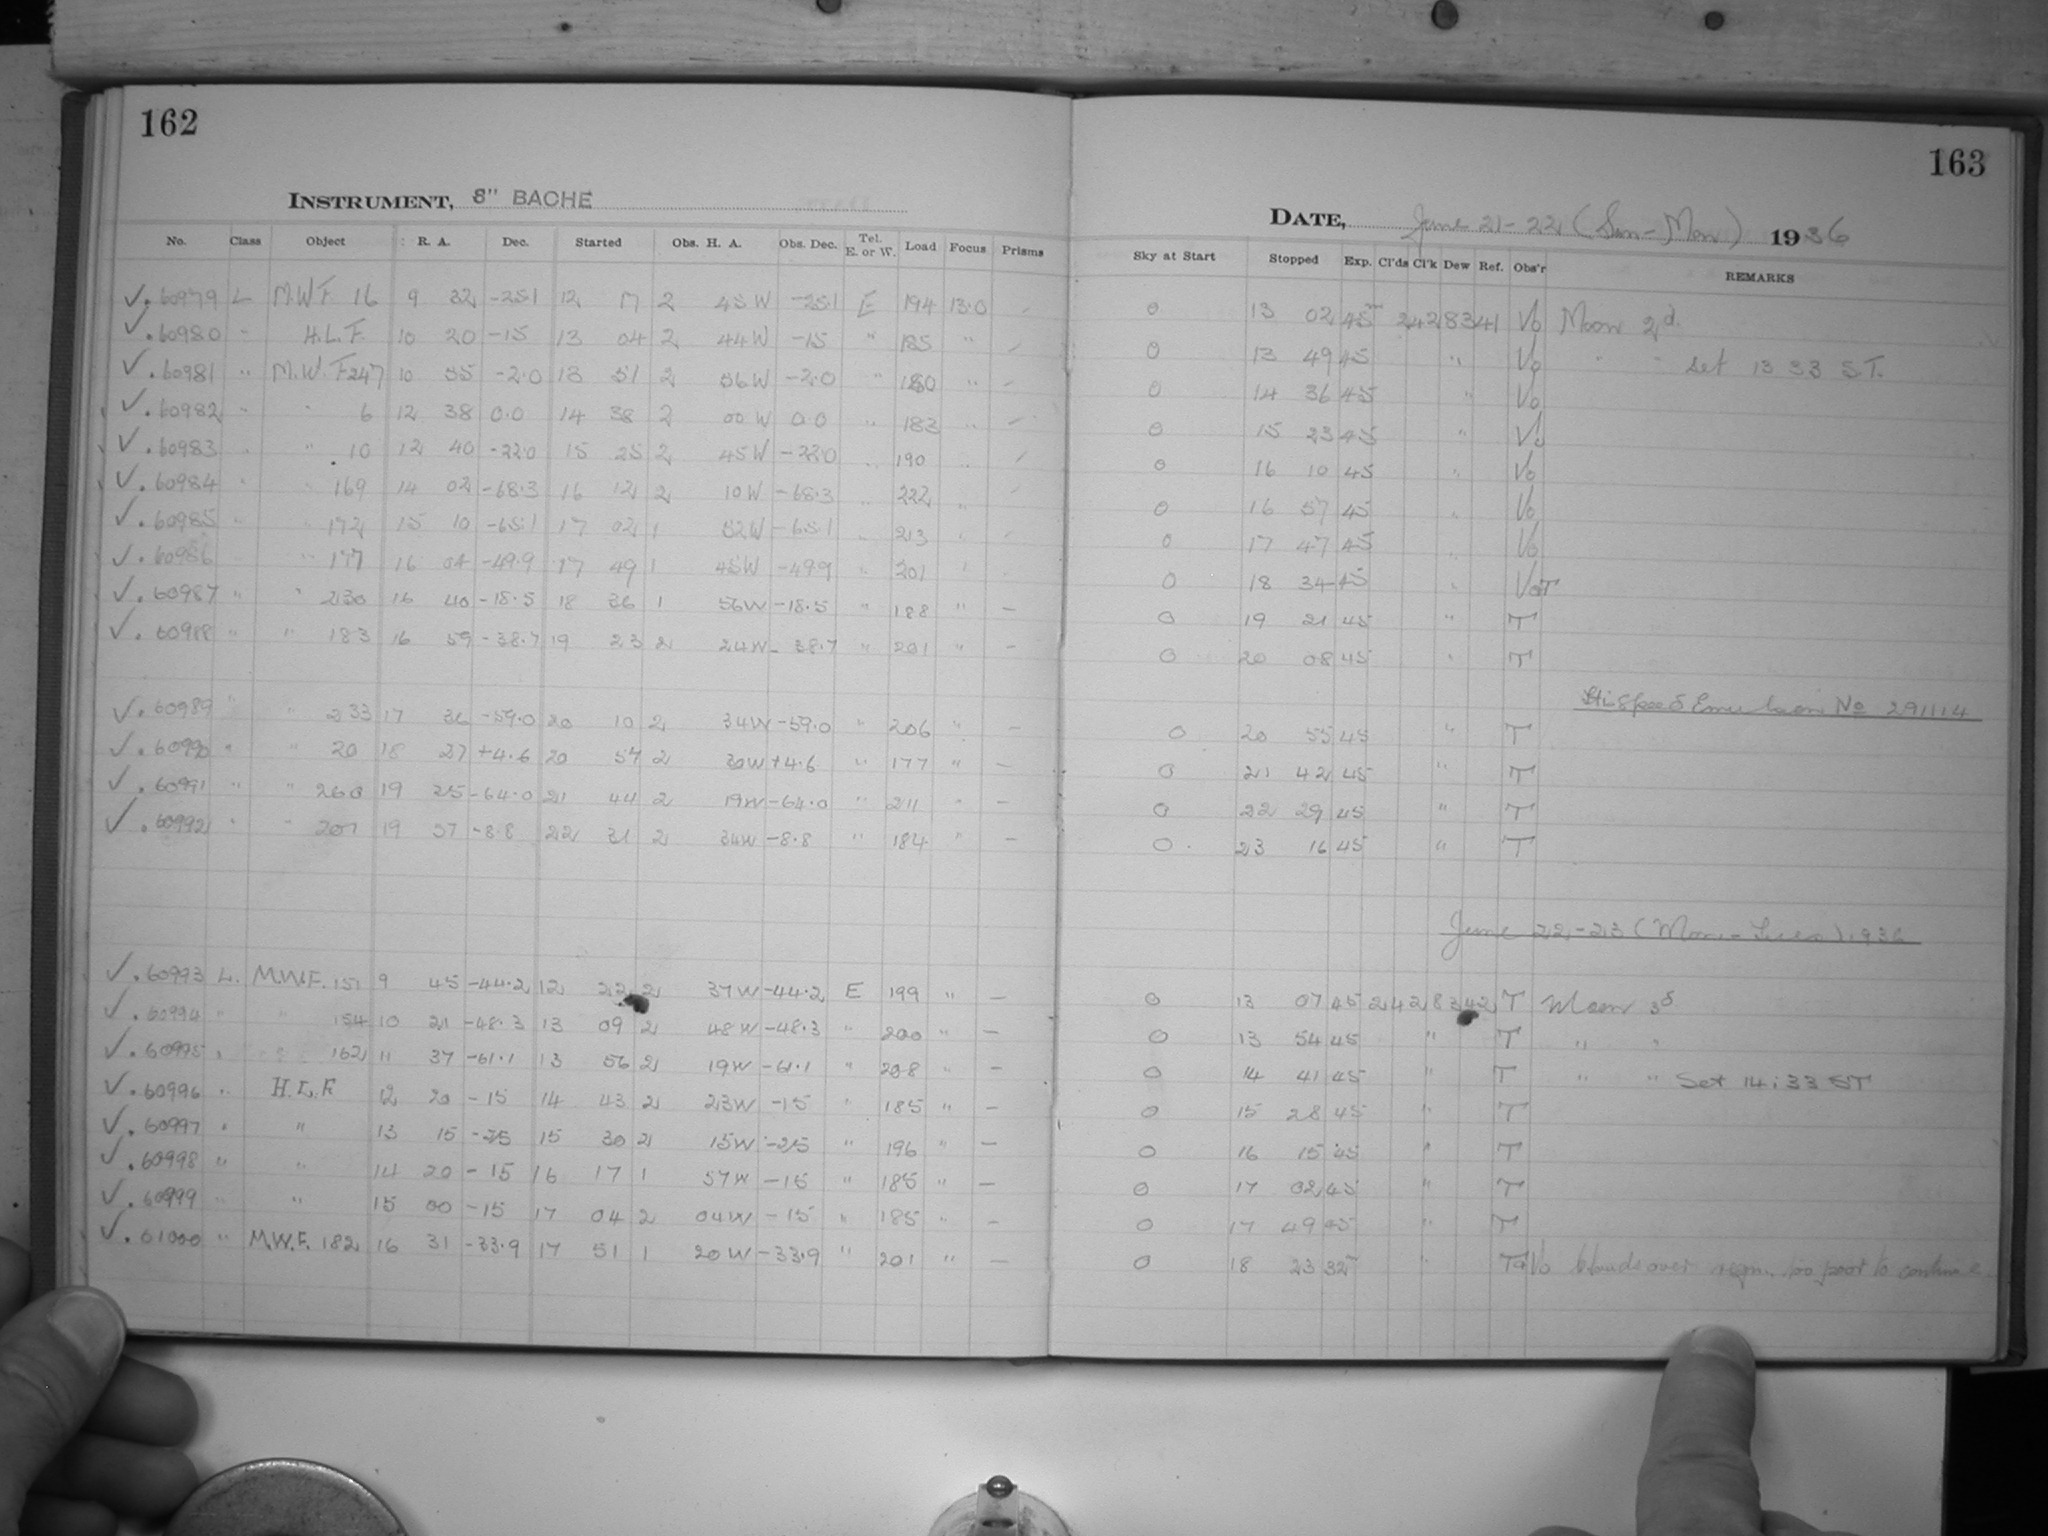 162
INSTRUMENT, 8" BACHE
No. Class Object R. A. Dec. Started Obs. H. A. Obs. Dec. Tel. E. or W. Load Focus Prisms
✓. 60979 L M.W.F. 16 9 32 -25.1 12 17 2 45 W -25.1 E 194 13.0 -
✓. 60980 " H.L.F. 10 20 -15 13 04 2 44 W -15 " 185 " -
✓. 60981 " M.W.F 247 10 55 -2.0 13 51 2 56 W -2.0 " 180 " -
✓. 60982 " " 6 12 38 0.0 14 38 2 00 W 0.0 " 183 " -
✓. 60983 " " 10 12 40 -22.0 15 25 2 45 W -22.0 " 190 " -
✓. 60984 " " 169 14 02 -68.3 16 12 2 10 W -68.3 " 222 " -
✓. 60985 " " 172 15 10 -65.1 17 02 1 52 W -65.1 " 213 " -
✓. 60986 " " 177 16 04 -49.9 17 49 1 45 W -49.9 " 201 " -
✓. 60987 " " 230 16 40 -18.5 18 36 1 56 W -18.5 " 188 " -
✓. 60988 " " 183 16 59 -38.7 19 23 2 24 W -38.7 " 201 " -
✓. 60989 " " 233 17 36 -59.0 20 10 2 34 W -59.0 " 206 " -
✓. 60990 " " 20 18 27 +4.6 20 57 2 30 W +4.6 " 177 " -
✓. 60991 " " 260 19 25 -64.0 21 44 2 19 W -64.0 " 211 " -
✓. 60992 " " 207 19 57 -8.8 22 31 2 34 W -8.8 " 184 " -
✓. 60993 L. M.W.F. 151 9 45 -44.2 12 22 2 37 W -44.2 E 199 " -
✓. 60994 " " 154 10 21 -48.3 13 09 2 48 W -48.3 " 200 " -
✓. 60995 " " 162 11 37 -61.1 13 56 2 19 W -61.1 " 208 " -
✓. 60996 " H.L.F. 12 20 -15 14 43 2 23 W -15 " 185 " -
✓. 60997 " " 13 15 -25 15 30 2 15 W -25 " 196 " -
✓. 60998 " " 14 20 -15 16 17 1 57 W -15 " 185 " -
✓. 60999 " " 15 00 -15 17 04 2 04 W -15 " 185 " -
✓. 61000 " M.W.F. 182 16 31 -33.9 17 51 1 20 W -33.9 " 201 " -
163
DATE, June 21-22 (Sun-Mon) 1936
Sky at Start Stopped Exp. Cl'ds Cl'k Dew Ref. Obs'r REMARKS
0 13 02 45 242 83 41 Vo Moon 2d
0 13 49 45 " Vo " " set 13 33 S.T.
0 14 36 45 " Vo
0 15 23 45 " Vo
0 16 10 45 " Vo
0 16 57 45 " Vo
0 17 47 45 " Vo
0 18 34 45 " Vo T
0 19 21 45 " T
0 20 08 45 " T
Hi Speed Emulsion No 291114
0 20 55 45 " T
0 21 42 45 " T
0 22 29 45 " T
0 23 16 45 " T
June 22-23 (Mon-Tues) 1936
0 13 07 45 242 83 42 T Moon 3d
0 13 54 45 " T " "
0 14 41 45 " T " " Set 14:33 ST
0 15 28 45 " T
0 16 15 45 " T
0 17 02 45 " T
0 17 49 45 " T
0 18 23 32 " T Vo Clouds over region too poor to continue